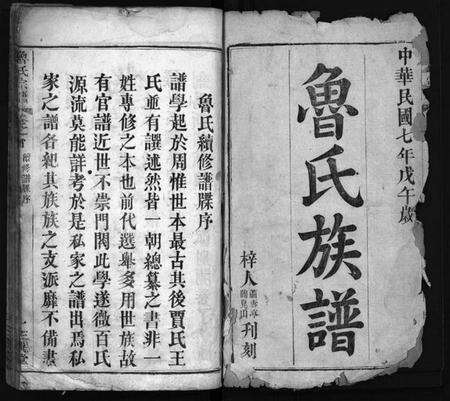 中華民國七年戊午歲
魯氏族譜
梓人
刊刻
魯氏續修譜牒序
譜學起於周惟世本最古其後賈氏王
氏並有譔述然皆一朝總纂之書非一
姓專修之本也前代選舉多用世族故
有官譜近世不崇門閥此學遂微百氏
源流莫能詳考於是私家之譜出焉私
家之譜各紀其族族之支派靡不備書
魯氏
續修譜牒序